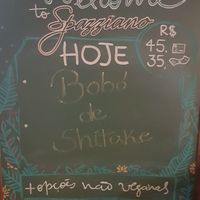 Welcome
to Spazziano
HOJE
R$
45,
35,
Bobó
de
Shitake
+opções não veganas